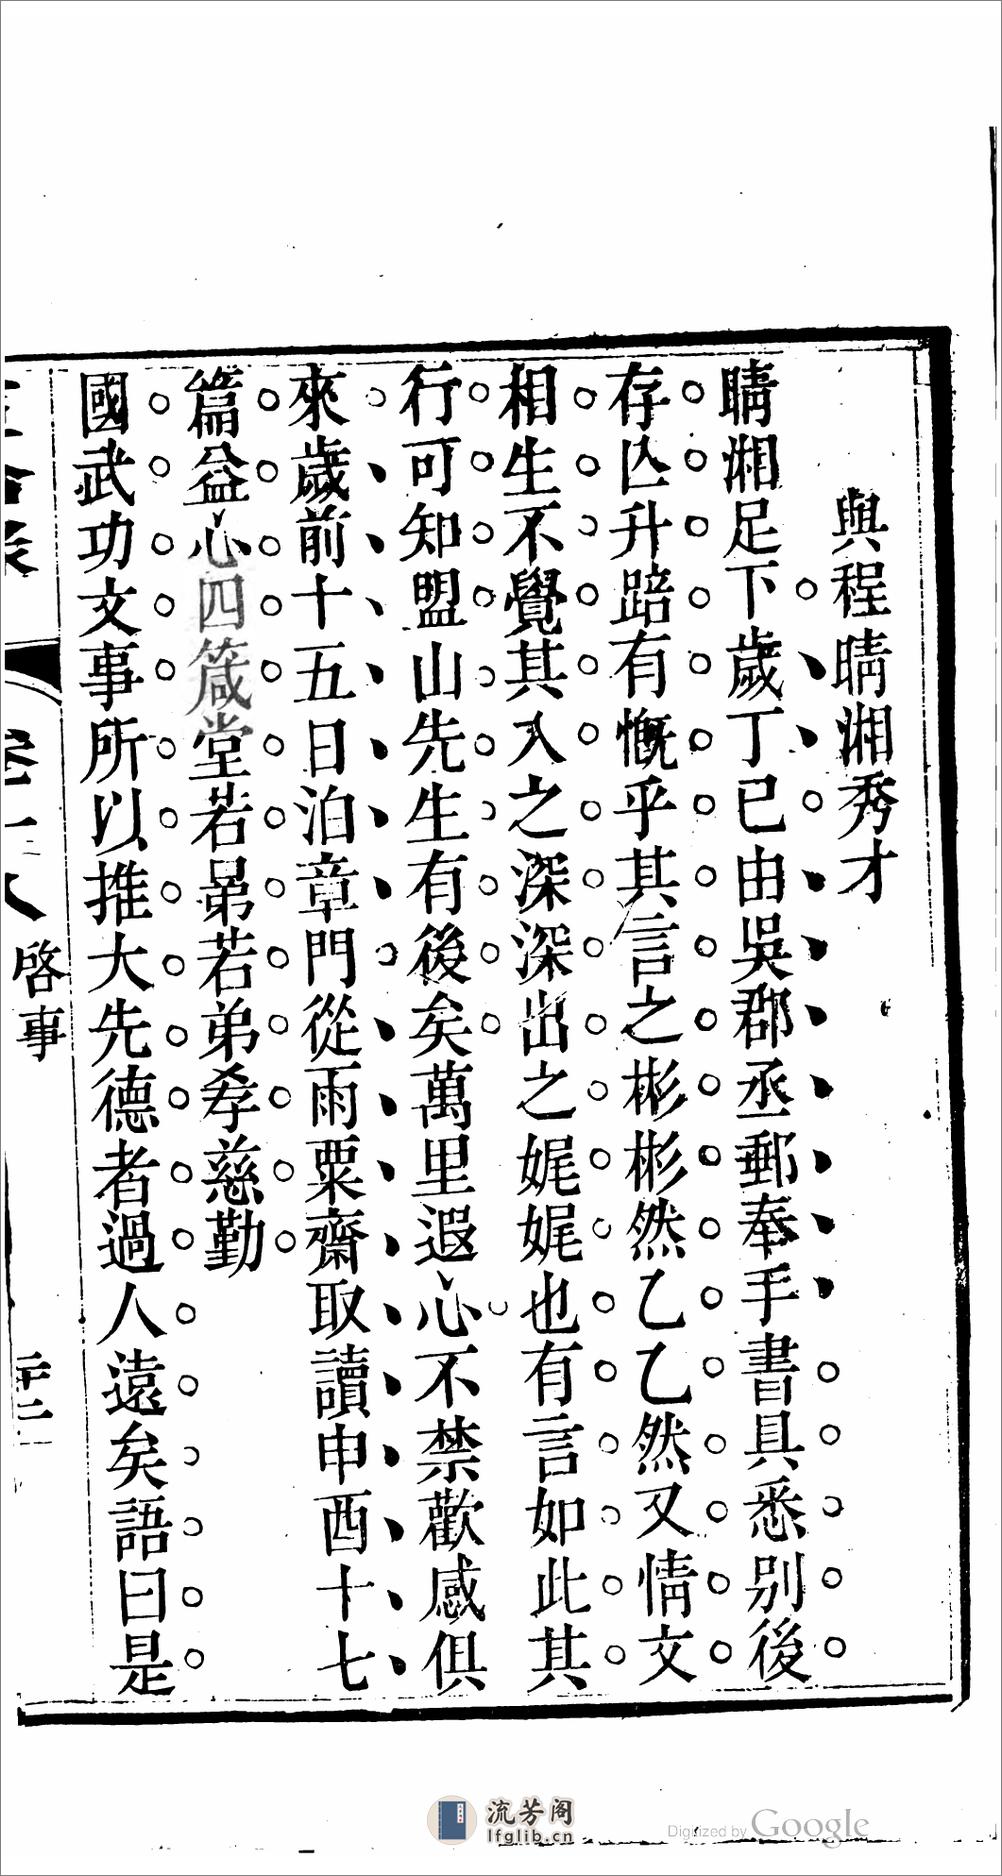 與程晴湘秀才
晴湘足下歲丁巳由吳郡丞郵奉手書具悉别後
存亾升踣有慨乎其言之彬彬然乙乙然又情文
相生不覺其入之深深出之娓娓也有言如此其
行可知盟山先生有後矣萬里遐心不禁歡感俱
來歲前十五日泊章門從雨粟齋取讀申酉十七
篇益心四箴堂若昴若弟孝慈勤
國武功文事所以推大先德者過人遠矣語曰是
啓事
二十二
流芳阁
lfglib.cn
Digitized by Google